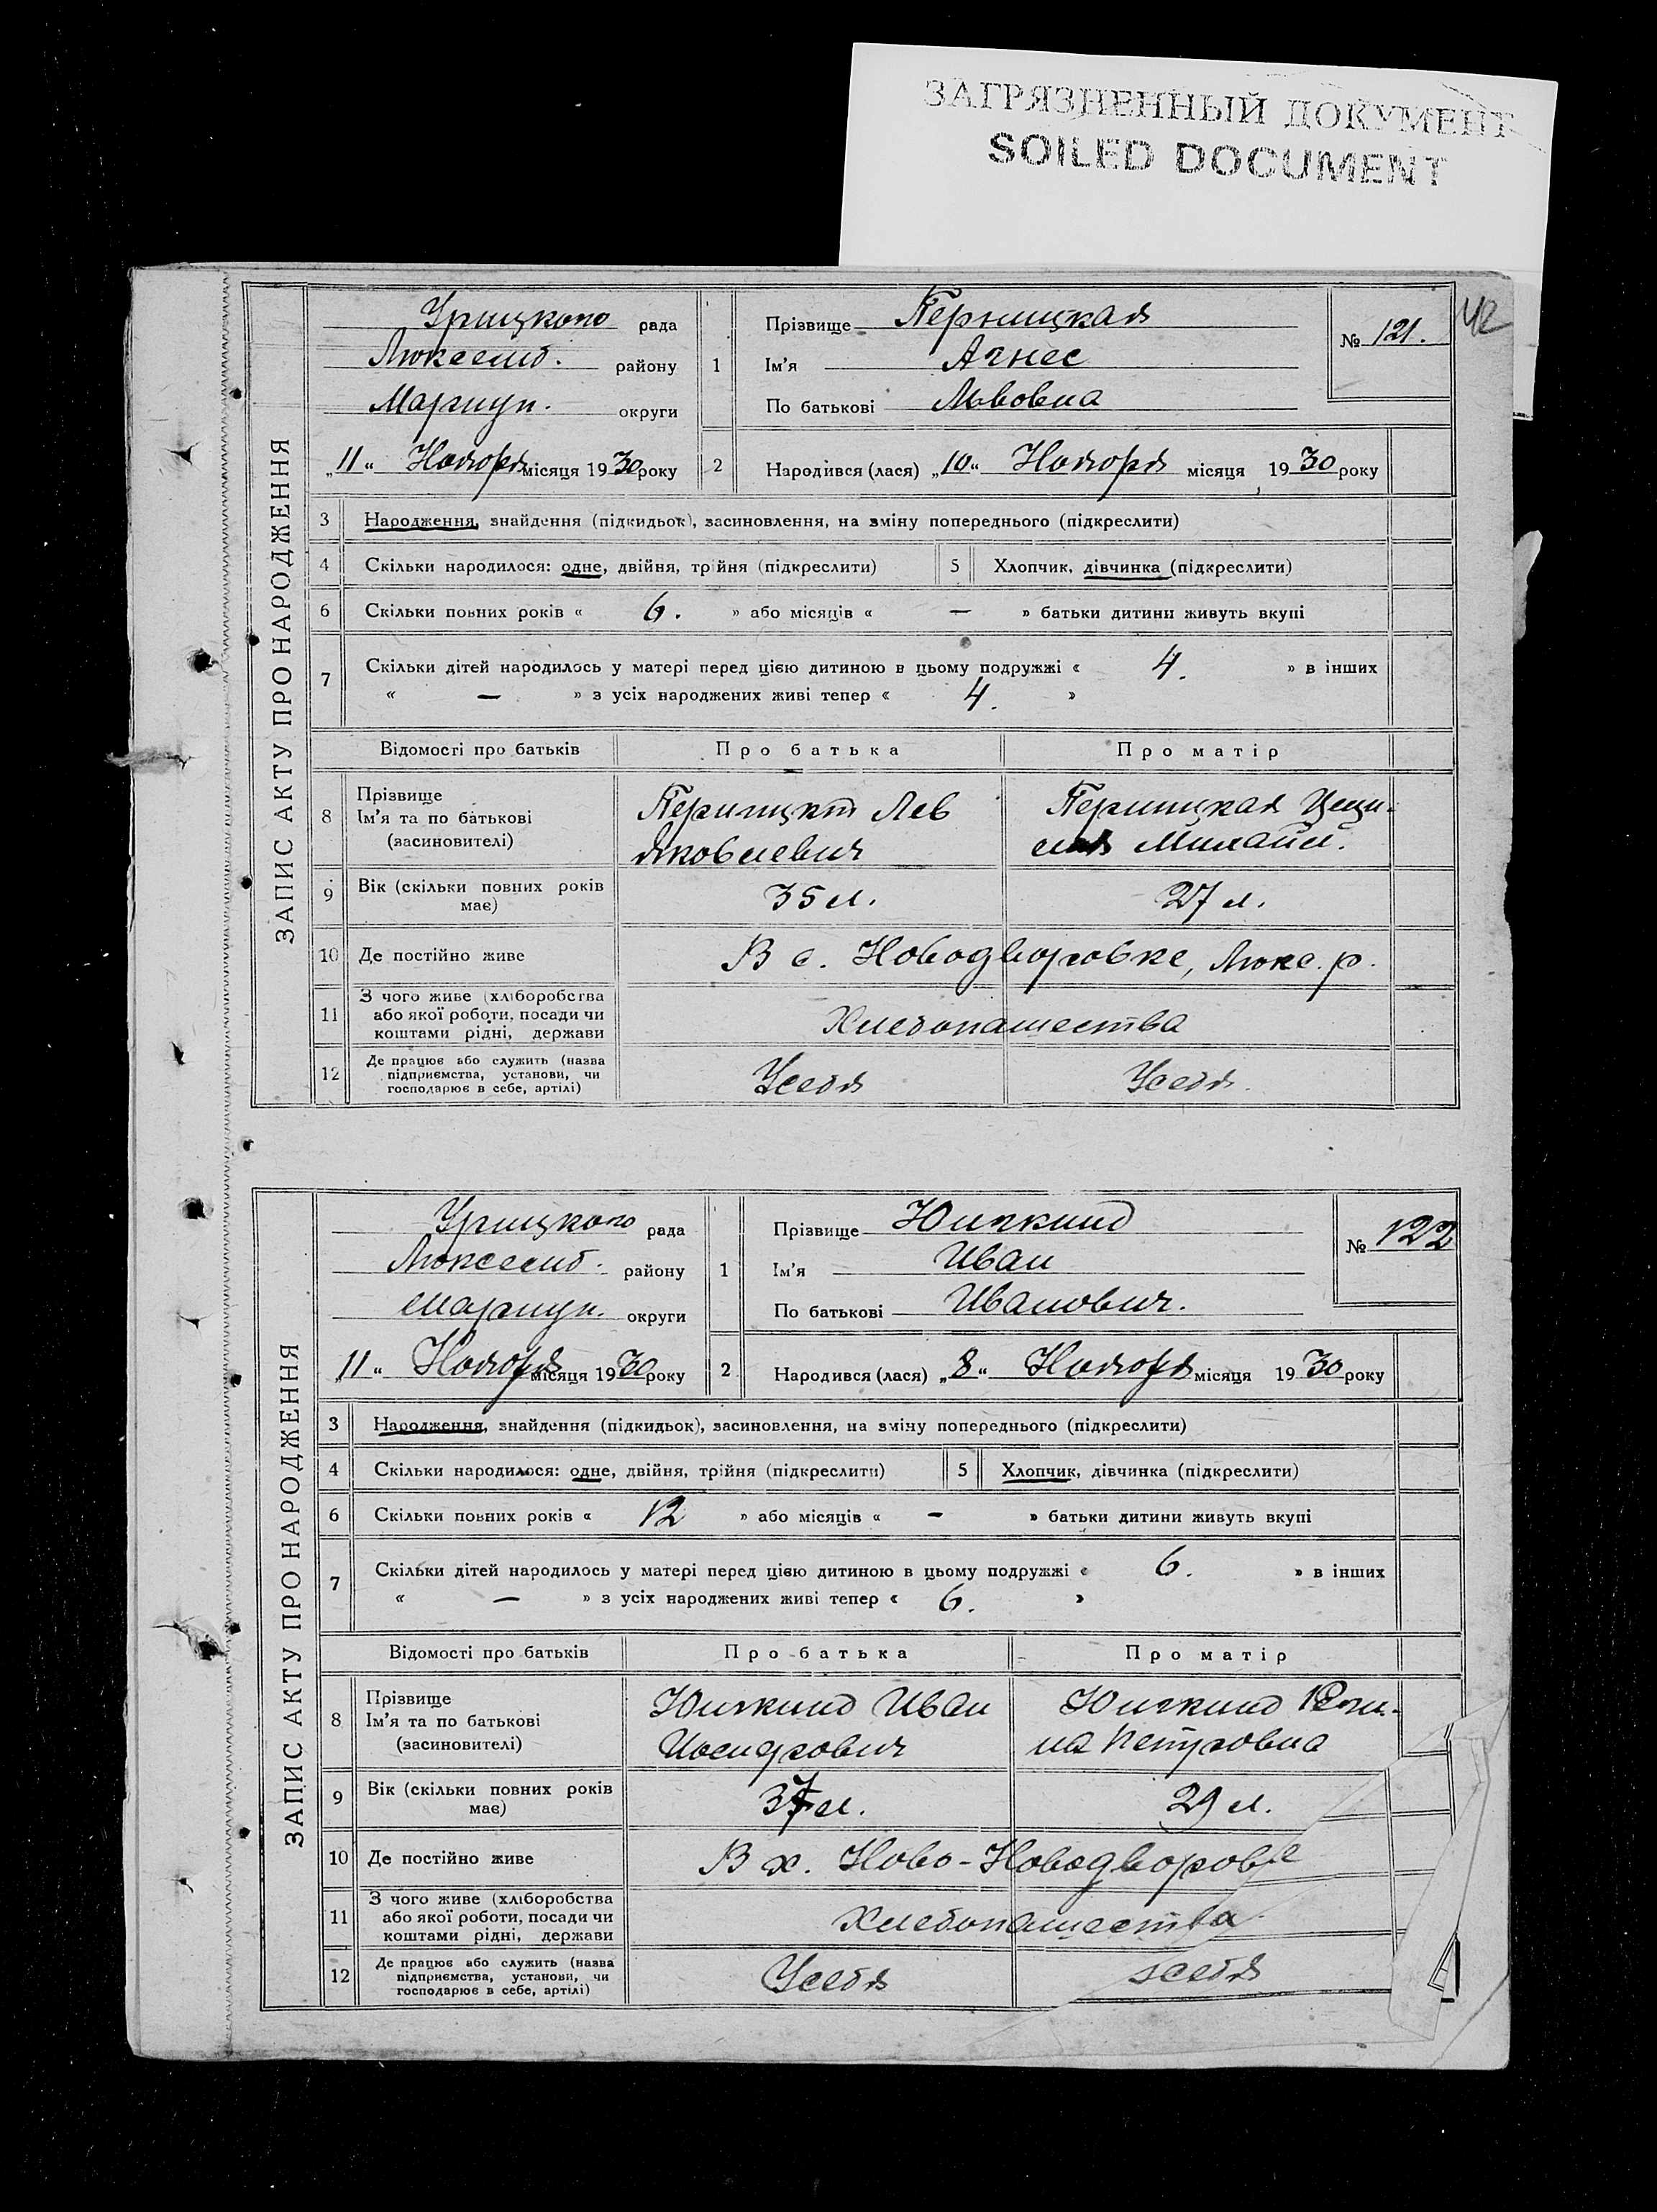 ЗАГРЯЗНЕННЫЙ ДОКУМЕНТ
SOILED DOCUMENT
42
ЗАПИС АКТУ ПРО НАРОДЖЕННЯ
Урицкого рада
Люксемб. району
Мариуп. округи
„11“ Ноября місяця 1930 року
1 Прізвище Терницкая
Ім'я Агнес
По батькові Львовна
№ 121.
2 Народився (лася) „10“ Ноября місяця 1930 року
3 Народження, знайдення (підкидьок), засиновлення, на зміну попереднього (підкреслити)
4 Скільки народилося: одне, двійня, трійня (підкреслити) 5 Хлопчик, дівчинка (підкреслити)
6 Скільки повних років « 6. » або місяців « — » батьки дитини живуть вкупі
7 Скільки дітей народилось у матері перед цією дитиною в цьому подружжі « 4. » в інших
« — » з усіх народжених живі тепер « 4. »
Відомості про батьків Про батька Про матір
8 Прізвище Ім'я та по батькові (засновителі)
Лев Яковлевич
Терницкая Цеци- Михайл.
9 Вік (скільки повних років має) 35 л. 27 л.
10 Де постійно живе В с. Новодворовке, Люкс. р.
11 З чого живе (хліборобства
або якої роботи, посади чи
коштами рідні, держави
Хлебопашества
12 Де працює або служить (назва
підприємства, установи, чи
господарює в себе, артілі)
У себя У себя.
ЗАПИС АКТУ ПРО НАРОДЖЕННЯ
Урицкого рада
Люксемб. району
Мариуп. округи
„11“ Ноября місяця 1930 року
1 Прізвище
Ім'я Иван
По батькові Иванович.
№ 122
2 Народився (лася) „8“ Ноября місяця 1930 року
3 Народження, знайдення (підкидьок), засиновлення, на зміну попереднього (підкреслити)
4 Скільки народилося: одне, двійня, трійня (підкреслити) 5 Хлопчик, дівчинка (підкреслити)
6 Скільки повних років « 12 » або місяців « — » батьки дитини живуть вкупі
7 Скільки дітей народилось у матері перед цією дитиною в цьому подружжі « 6. » в інших
« — » з усіх народжених живі тепер « 6. »
Відомості про батьків Про батька Про матір
8 Прізвище
Ім'я та по батькові
(засиновителі)
Иван
Петровна
9 Вік (скільки повних років має) 37 л. 29 л.
10 Де постійно живе В х. Ново-Новодворовке
11 З чого живе (хліборобства
або якої роботи, посади чи
коштами рідні, держави
Хлебопашества
12 Де працює або служить (назва
підприємства, установи, чи
господарює в себе, артілі)
У себя себя